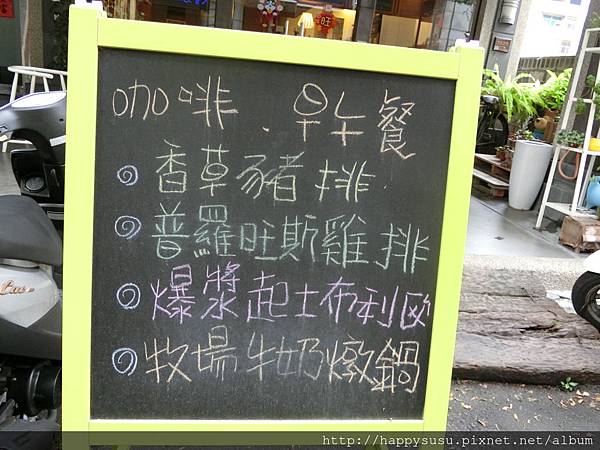 咖啡．早午餐
香草豬排
普羅旺斯雞排
爆漿起士布利歐
牧場牛奶燉鍋
http://happysusu.pixnet.net/album